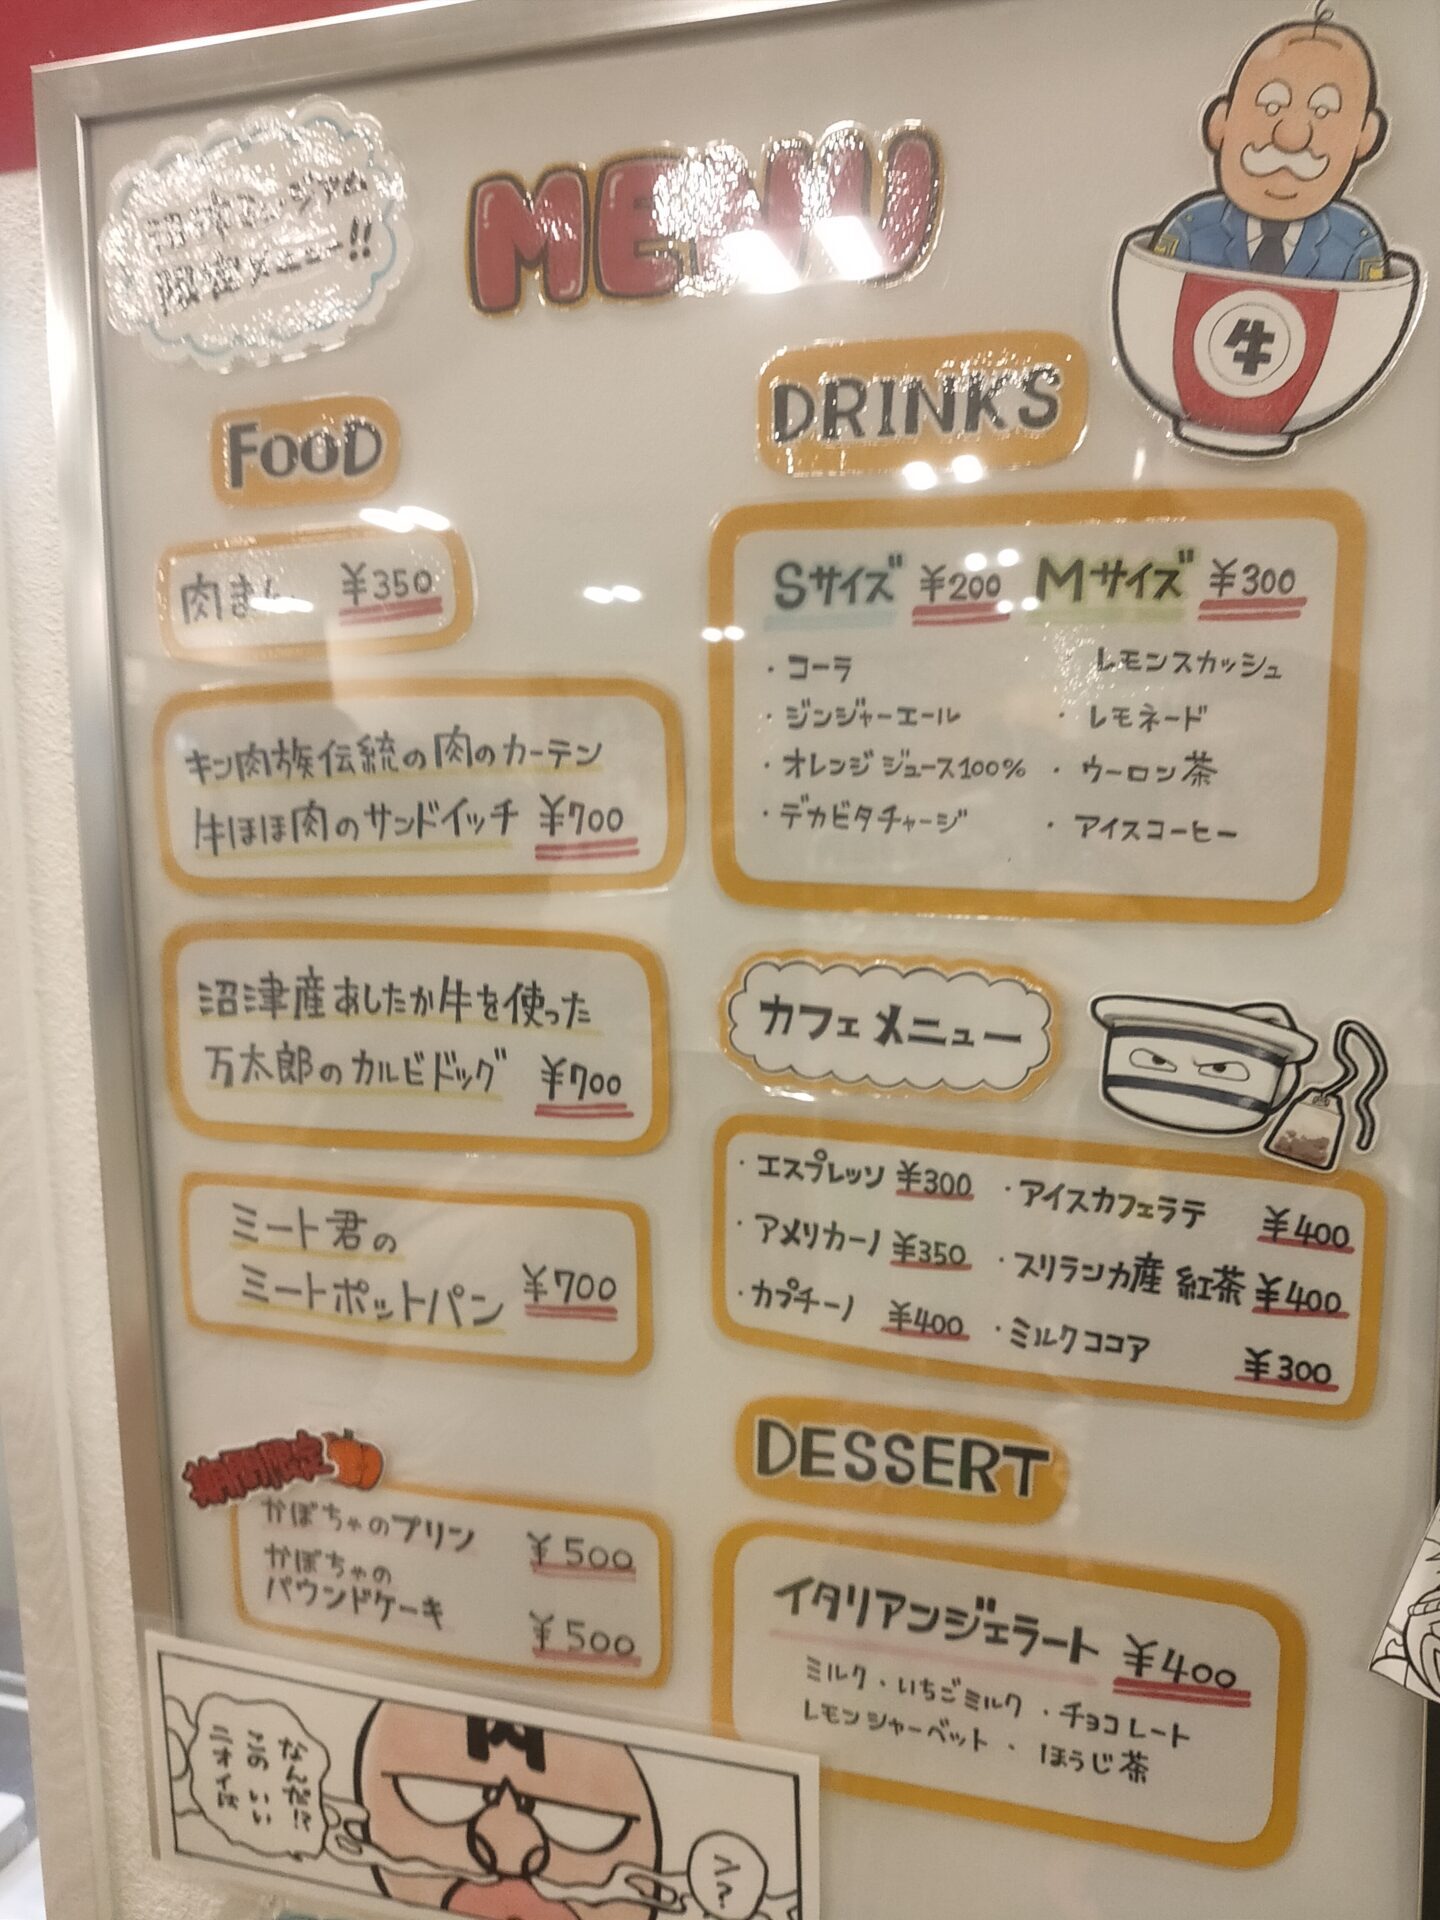 沼津ミュージアム
限定メニュー!!
MENU
牛
FOOD
肉まん ¥350
キン肉族伝統の肉のカーテン
牛ほほ肉のサンドイッチ ¥700
沼津産あしたか牛を使った
万太郎のカルビドッグ ¥700
ミート君の
ミートポットパン ¥700
期間限定
かぼちゃのプリン ¥500
かぼちゃの
パウンドケーキ ¥500
なんだ!?
このいい
ニオイは
へ?
DRINKS
Sサイズ ¥200 Mサイズ ¥300
・コーラ レモンスカッシュ
・ジンジャーエール ・レモネード
・オレンジジュース100% ・ウーロン茶
・デカビタチャージ ・アイスコーヒー
カフェメニュー
・エスプレッソ ¥300 ・アイスカフェラテ ¥400
・アメリカーノ ¥350 ・スリランカ産 紅茶 ¥400
・カプチーノ ¥400 ・ミルクココア ¥300
DESSERT
イタリアンジェラート ¥400
ミルク・いちごミルク・チョコレート
レモンシャーベット・ほうじ茶